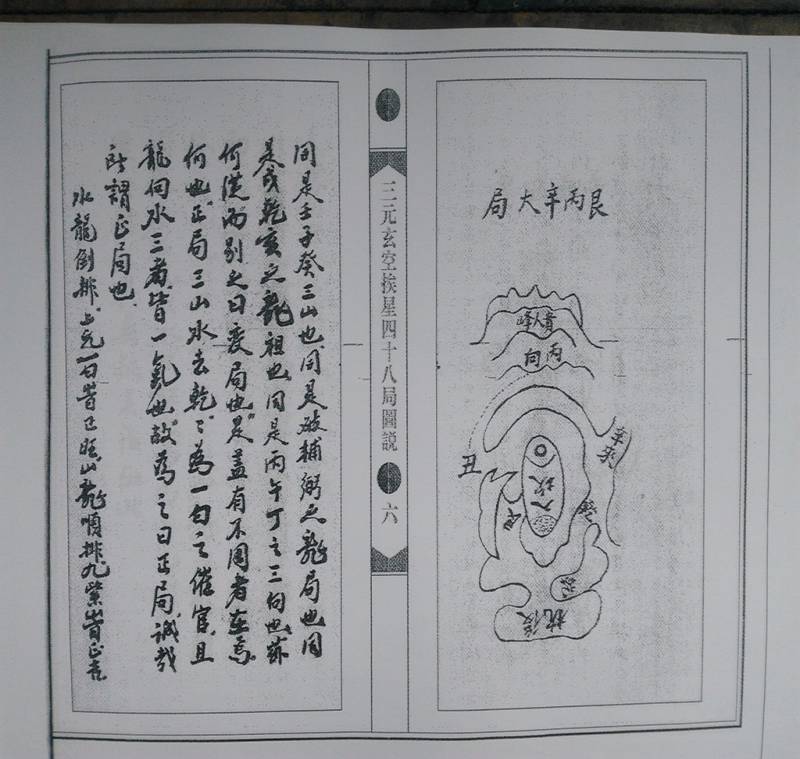 艮丙辛大局
貴人峰
丙向
丑
艮
入
後枕
三元玄空挨星四十八局圖説
六
同是壬子癸三山也同是破補弼之龍局也同
是戌乾亥之龍祖也同是丙午丁之三向也茲
何從而別之曰變局也是蓋有不同者在焉
何也正局三山水去乾〻為一白之催官且
龍向水三者皆一氣也故為之曰正局誠哉
所謂正局也
水龍倒排上元一白皆正旺山龍順排九紫皆正